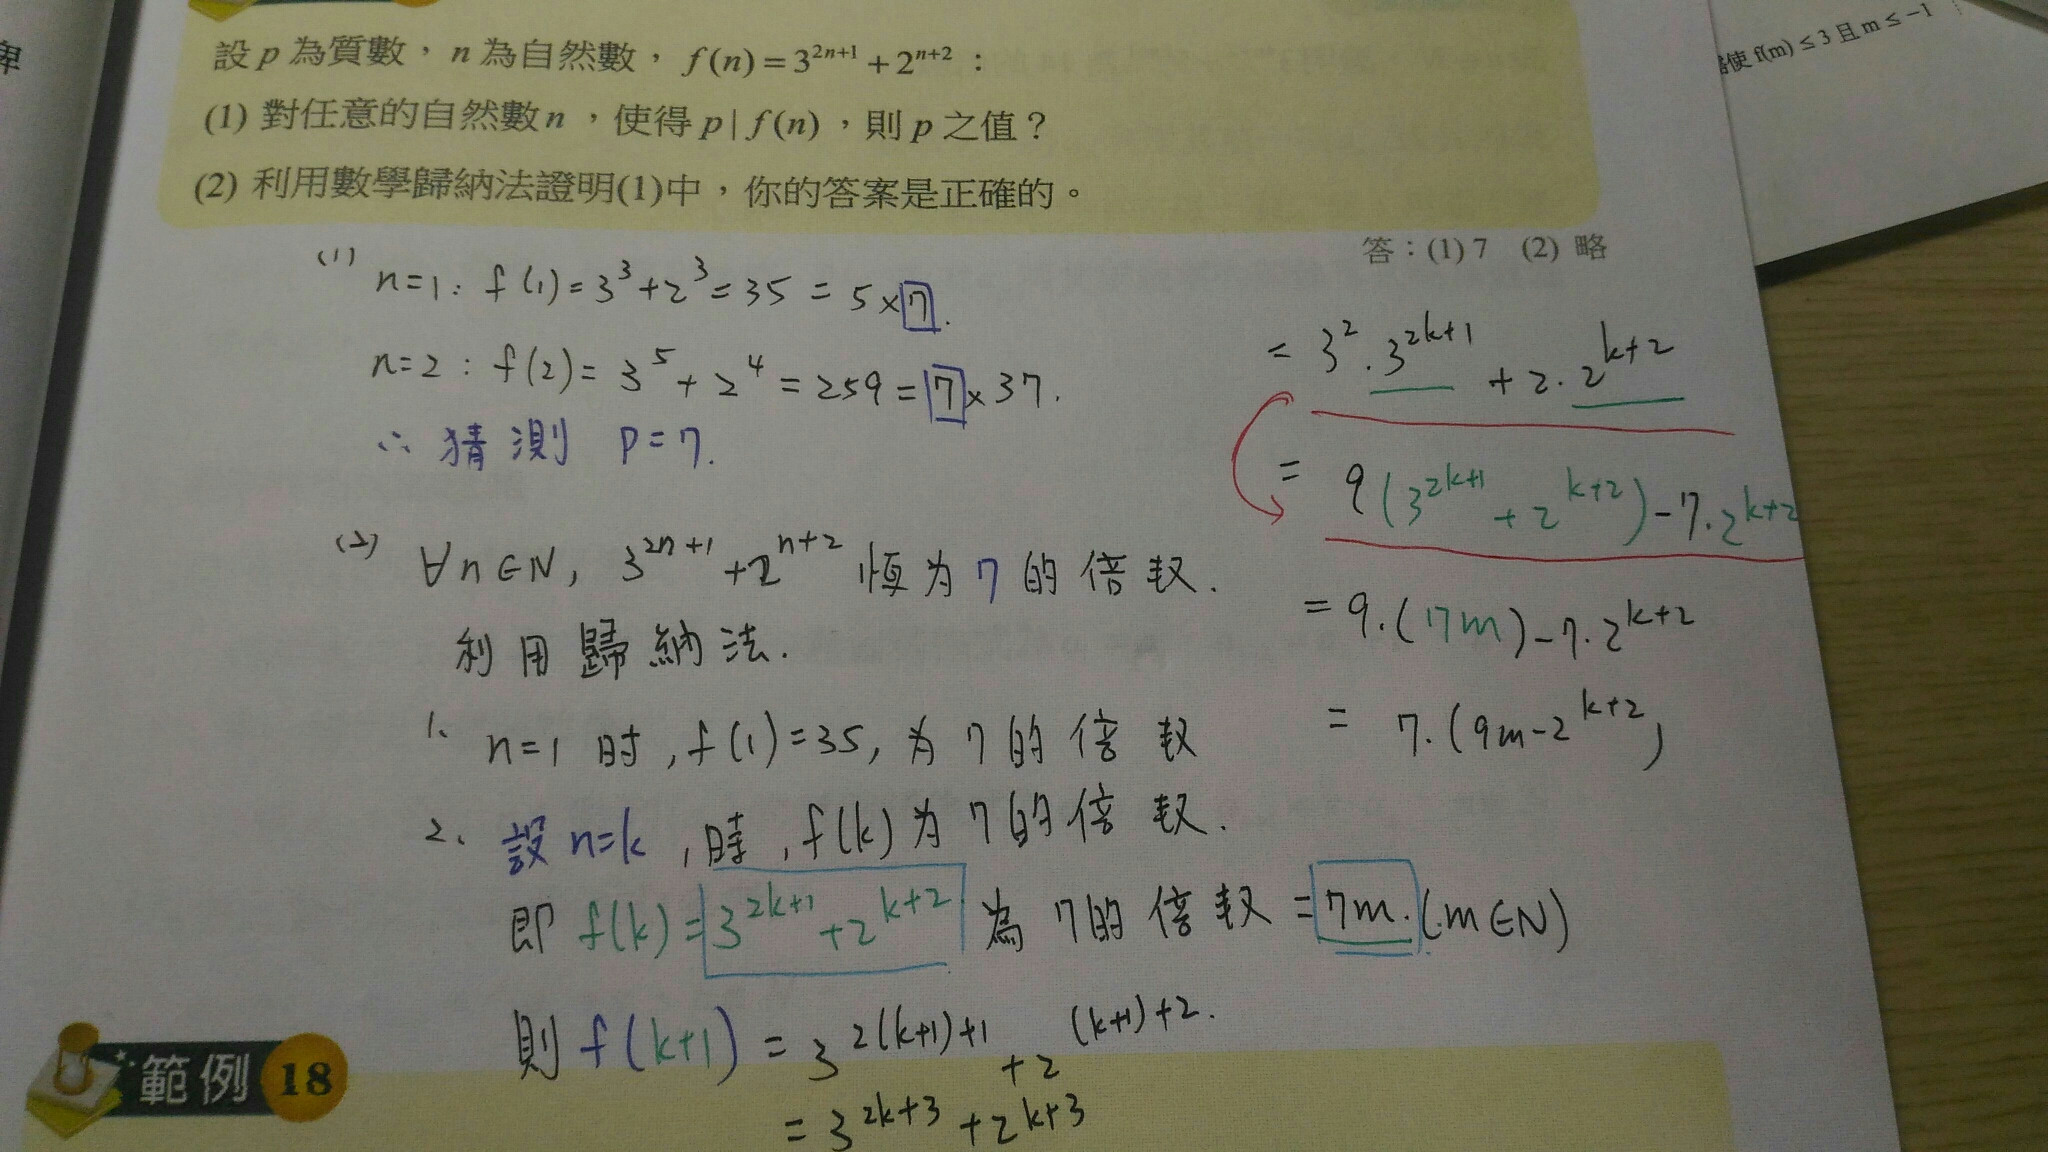 設 p 為質數，n 為自然數，f(n) = 3^{2n+1} + 2^{n+2}：
(1) 對任意的自然數 n，使得 p | f(n)，則 p 之值？
(2) 利用數學歸納法證明(1)中，你的答案是正確的。
答：(1) 7 (2) 略
(1) n=1: f(1)=3^3+2^3=35=5×7.
n=2: f(2)=3^5+2^4=259=7×37.
∴ 猜測 P=7.
(2) ∀n∈N, 3^{2n+1}+2^{n+2} 恆为7的倍数.
利用歸納法.
1. n=1 时, f(1)=35, 为7的倍数
2. 設 n=k, 時, f(k)为7的倍数.
即 f(k)=3^{2k+1}+2^{k+2} 為7的倍数=7m. (m∈N)
則 f(k+1)=3^{2(k+1)+1}+2^{(k+1)+2}.
=3^{2k+3}+2^{k+3}
=3^2·3^{2k+1}+2·2^{k+2}
=9(3^{2k+1}+2^{k+2})-7·2^{k+2}
=9·(7m)-7·2^{k+2}
=7·(9m-2^{k+2})
範例 18
使 f(m) ≤ 3 且 m ≤ -1